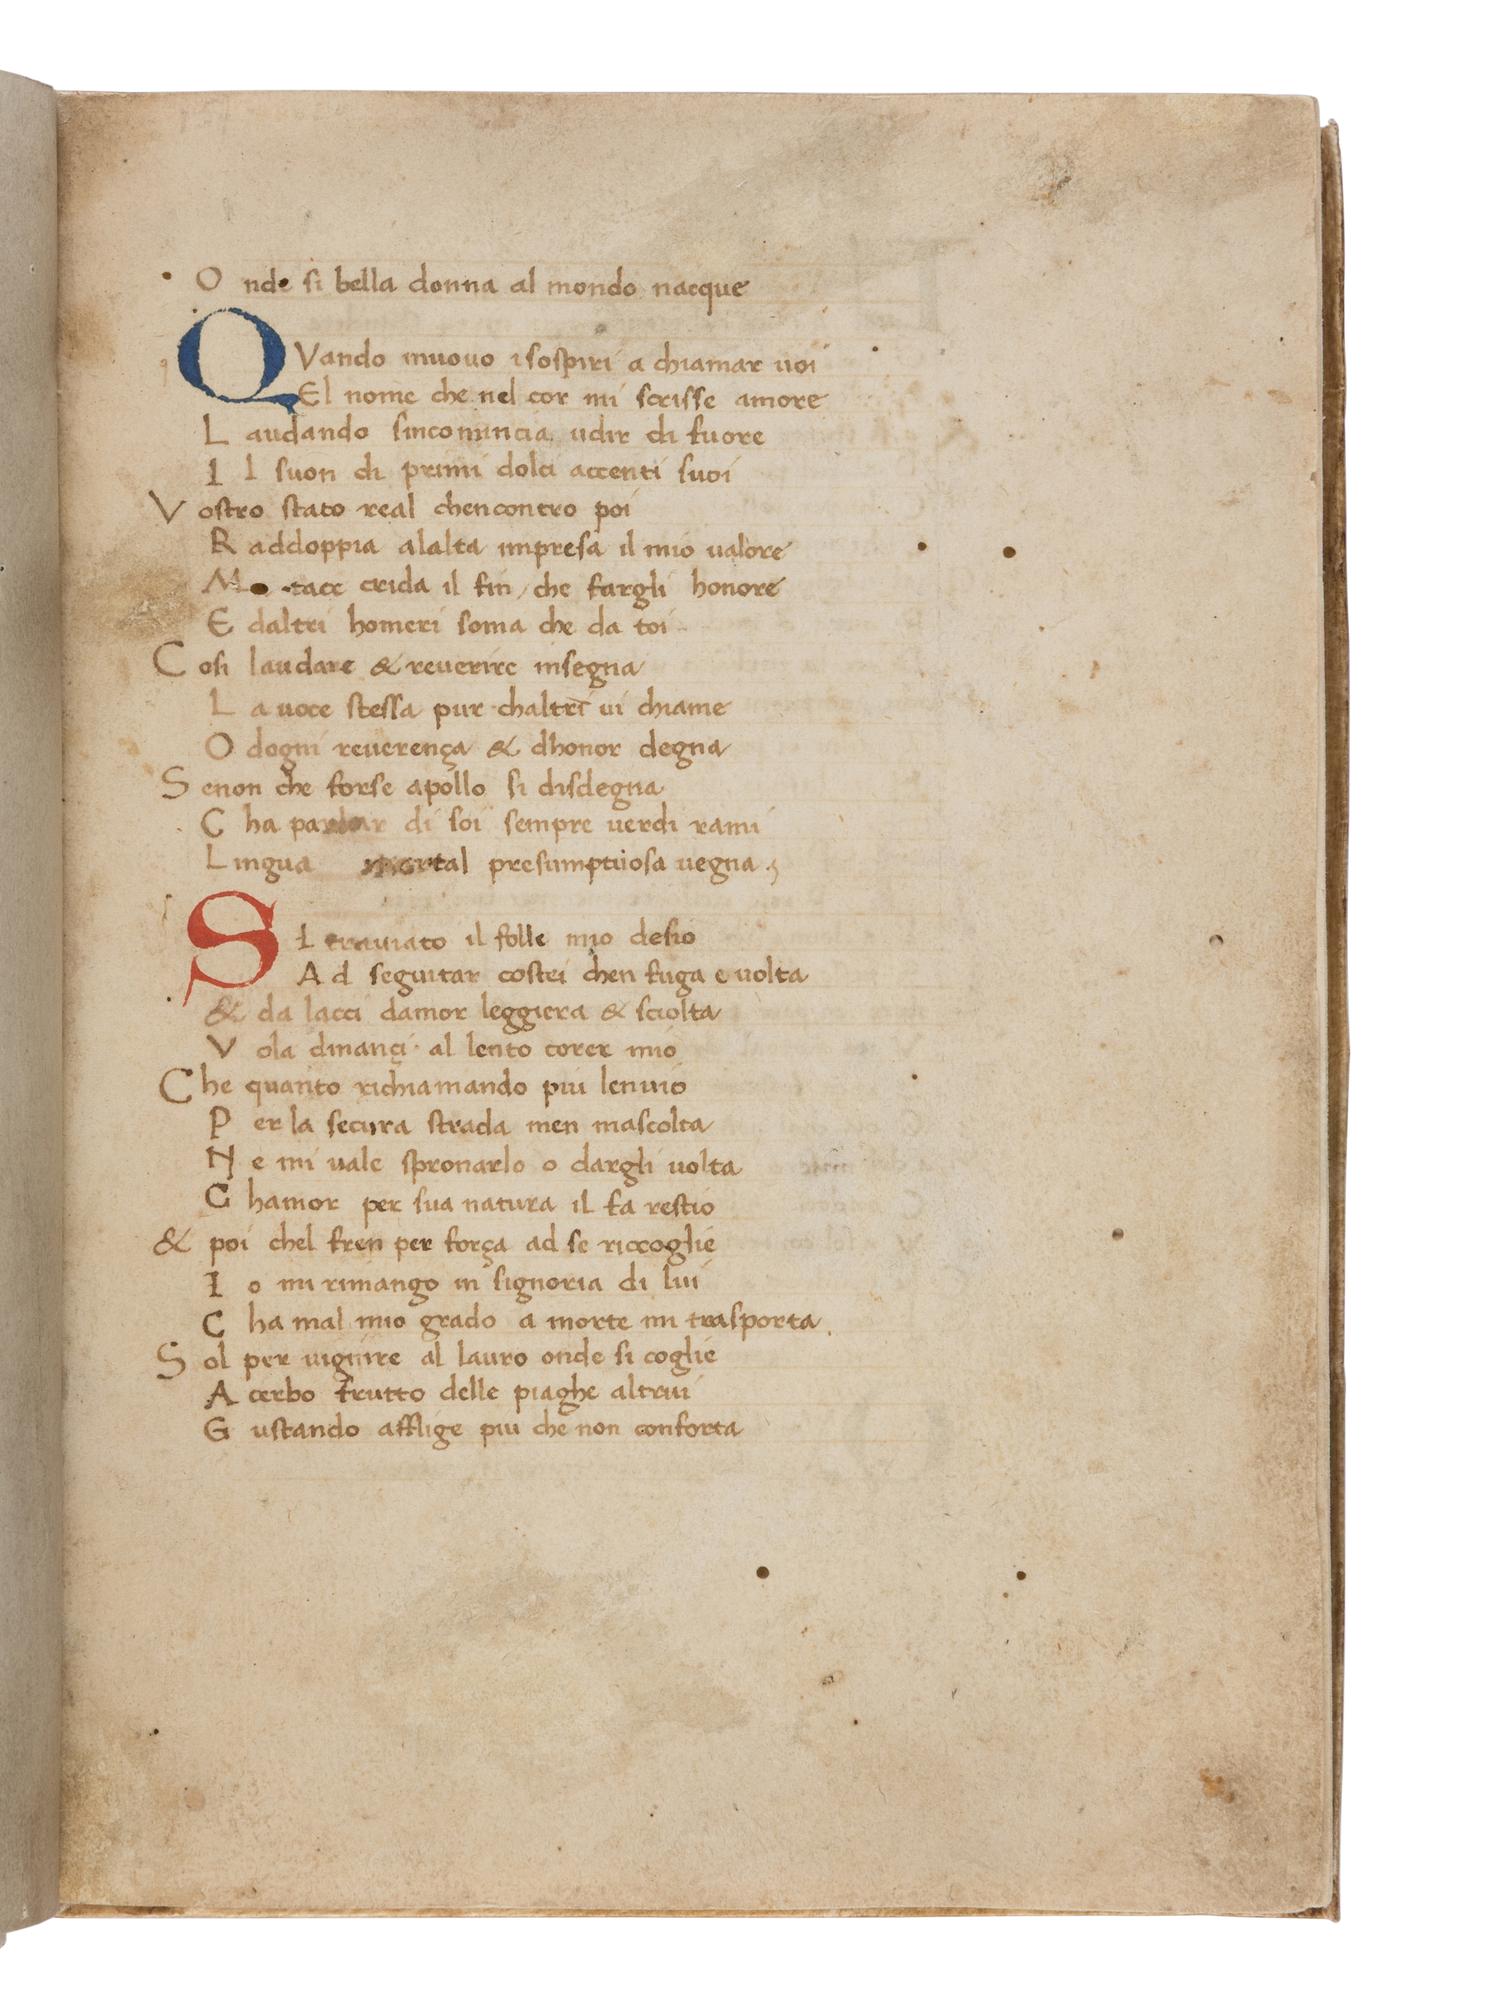 O nde si bella donna al mondo nacque
QVando muouo i sospiri a chiamar uoi
El nome che nel cor mi scrisse amore
L audando sincomincia udir di fuore
I l suon di primi dolci accenti suoi
V ostro stato real chencontro poi
R addoppia alalta impresa il mio ualore
M tace crida il fin / che fargli honore
E daltri homeri soma che da toi
C osi laudare & reuerire insegna
L a uoce stessa pur chaltri ui chiame
O dogni reuerença & dhonor degna
S enon che forse apollo si disdegna
C ha parlar di soi sempre uerdi rami
L ingua mortal presumptuosa uegna
SI trauiato il folle mio desio
A d seguitar costei chen fuga e uolta
& da lacci damor leggiera & sciolta
V ola dinançi al lento corer mio
C he quanto richiamando piu lenuio
P er la secura strada men mascolta
N e mi uale spronarlo o dargli uolta
C hamor per sua natura il fa restio
& poi chel fren per força ad se riccoglie
I o mi rimango in signoria di lui
C ha mal mio grado a morte mi trasporta
S ol per uignire al lauro onde si coglie
A cerbo frutto delle piaghe altrui
G ustando afflige piu che non conforta